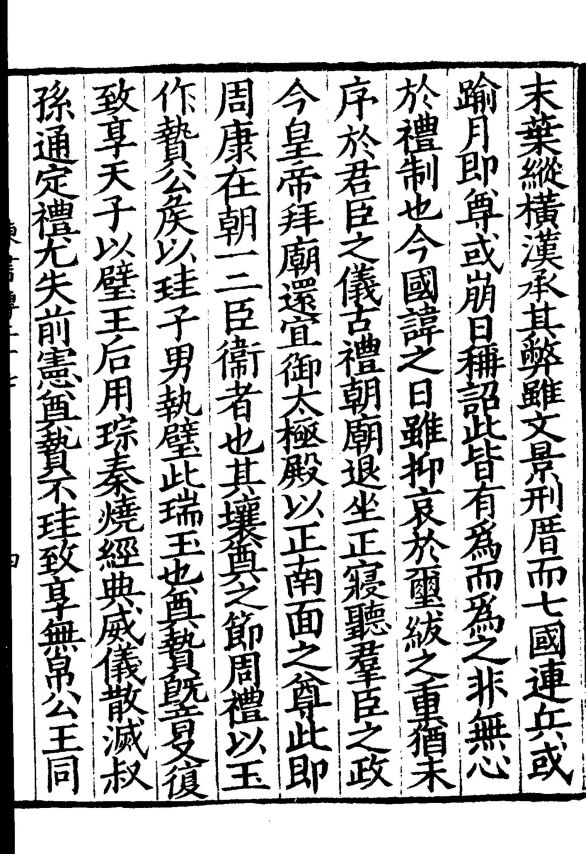 末葉縱橫漢承其弊雖文景刑厝而七國連兵或
踰月即尊或崩日稱詔此皆有爲而爲之非無心
於禮制也今國諱之日雖抑哀於璽紱之重猶未
序於君臣之儀古禮朝廟退坐正寢聽羣臣之政
今皇帝拜廟還宜御太極殿以正南面之尊此即
周康在朝一二臣衞者也其壤奠之節周禮以玉
作贄公侯以珪子男執璧此瑞玉也奠贄旣竟復
致享天子以璧王后用琮秦燒經典威儀散滅叔
孫通定禮尤失前憲奠贄不珪致享無帛公王同
陳書傳二十七
四